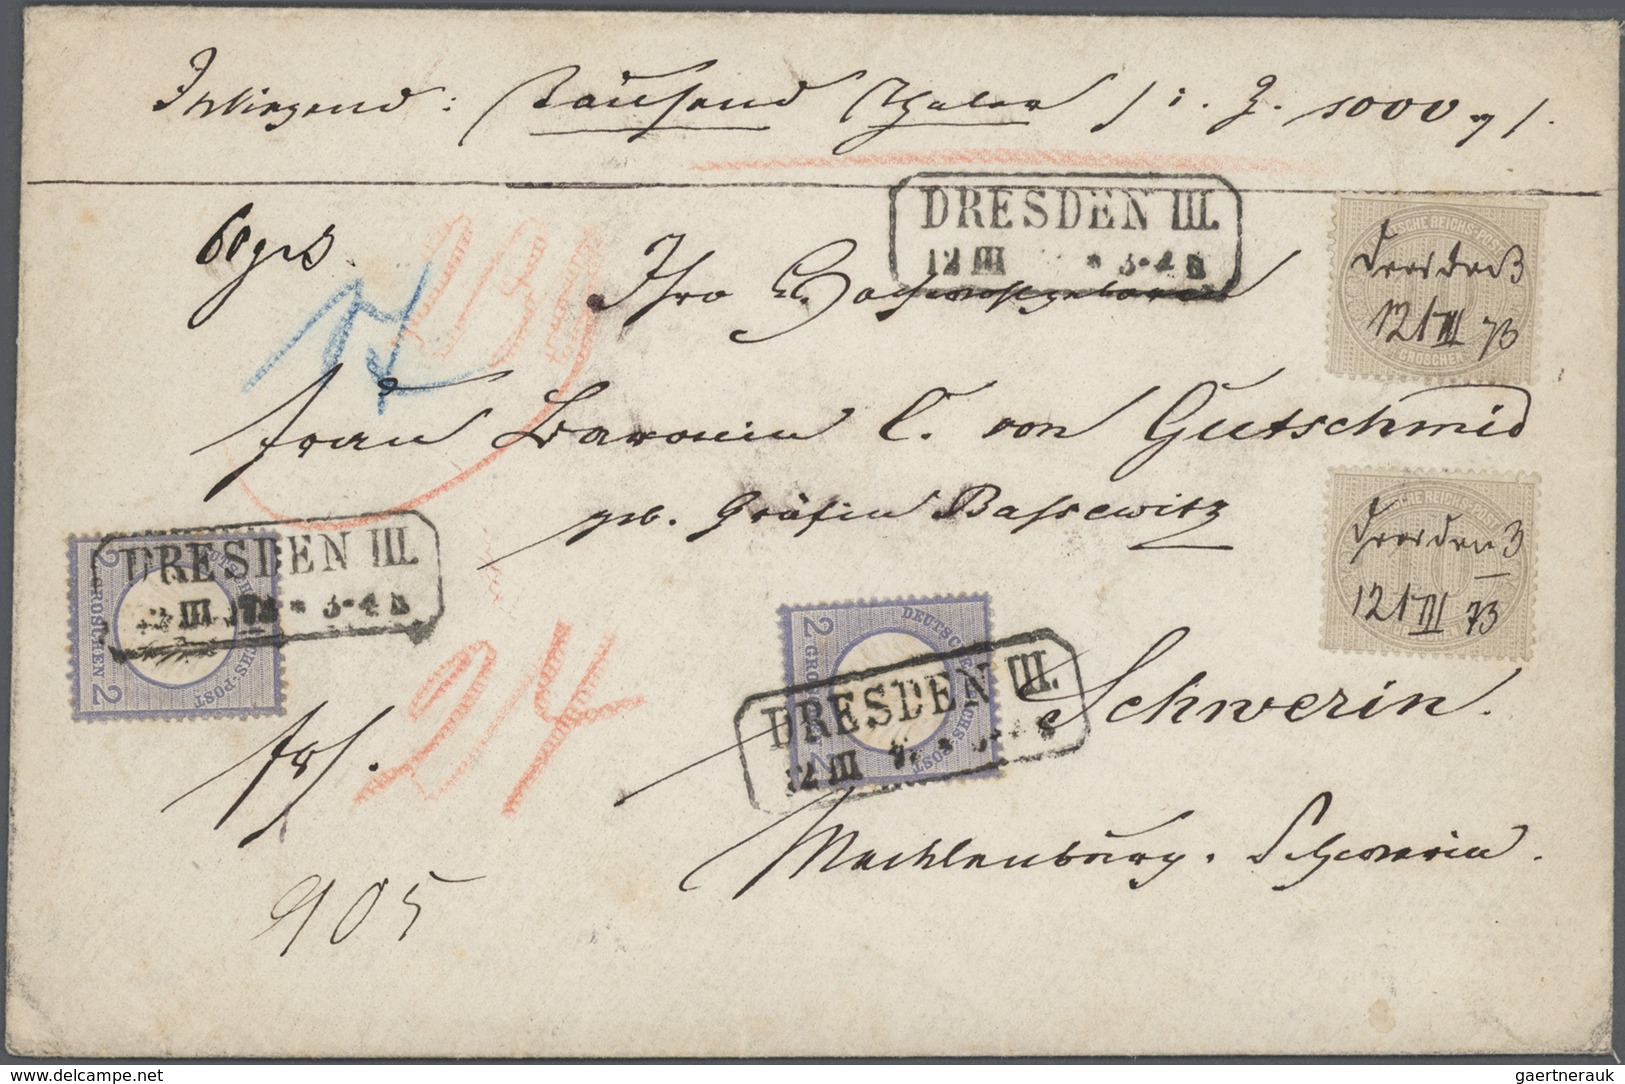 Inliegend: Tausend Thaler / i. Z. 1000 /.
DRESDEN III.
12 III * 3-4 N
60grs
Ihro Hochwohlgeboren
DEUTSCHE REICHS-POST
GROSCHEN
Dresden 3
12/III 73
Frau Baronin C. von Gutschmid
geb. Gräfin Bassewitz
DEUTSCHE REICHS-POST
10
Dresden 3
12/III 73
DRESDEN III.
12 III 73 * 3-4 N
2 GROSCHEN 2
REICHS-POST
DEUTSCHE REICHS-POST
2 GROSCHEN 2
DRESDEN III.
12 III
Schwerin.
24
Mecklenburg. Schwerin.
905
delcampe.net
gaertnerauk